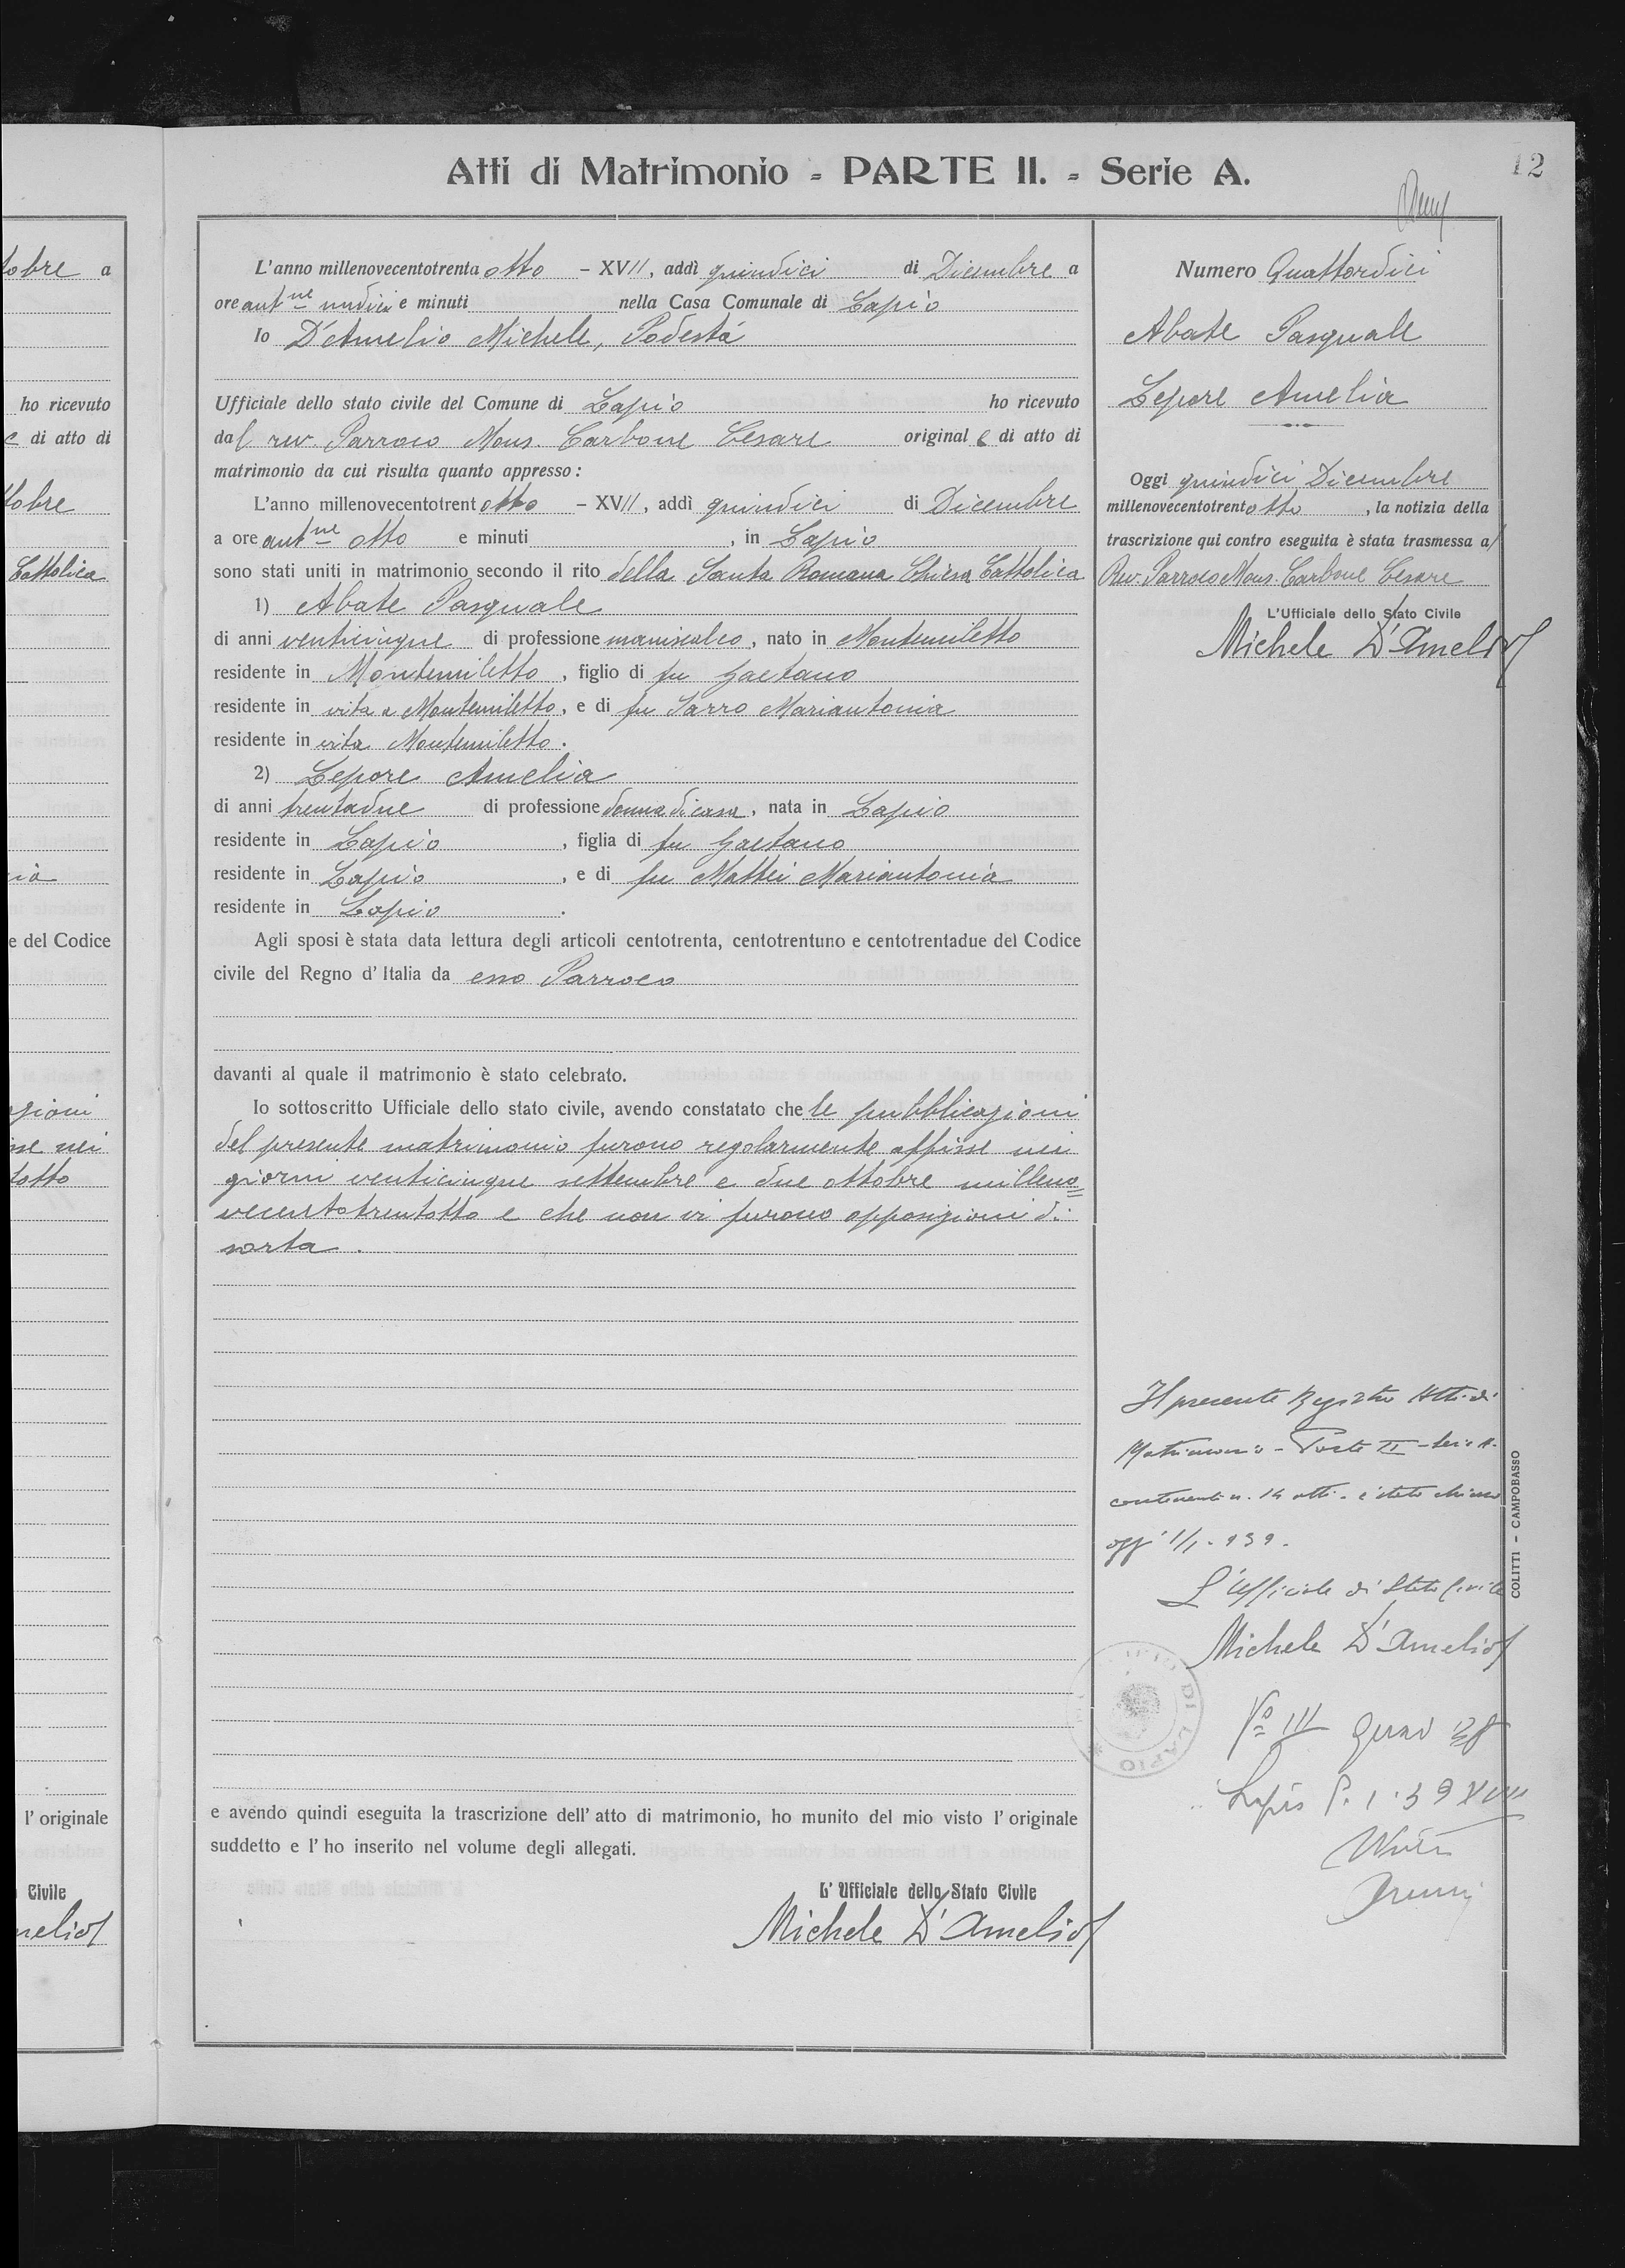 Atti di Matrimonio - PARTE II. - Serie A.
12
L'anno millenovecentotrenta otto - XVII, addì quindici di Dicembre a
ore ant.ne undici e minuti nella Casa Comunale di Lapio
Io D'Amelio Michele, Podestà
Ufficiale dello stato civile del Comune di Lapio ho ricevuto
dal rev. Parroco Mons. Carbone Cesare originale di atto di
matrimonio da cui risulta quanto appresso:
L'anno millenovecentotrentotto - XVII, addì quindici di Dicembre
a ore ant.ne otto e minuti , in Lapio
sono stati uniti in matrimonio secondo il rito della Santa Romana Chiesa Cattolica
1) Abate Pasquale
di anni venticinque di professione maniscalco, nato in Montemiletto
residente in Montemiletto, figlio di fu Gaetano
residente in vita a Montemiletto, e di fu Sarro Mariantonia
residente in vita Montemiletto.
2) Lepore Amelia
di anni trentadue di professione donna di casa, nata in Lapio
residente in Lapio, figlia di fu Gaetano
residente in Lapio, e di fu Mattei Mariantonia
residente in Lapio.
Agli sposi è stata data lettura degli articoli centotrenta, centotrentuno e centotrentadue del Codice
civile del Regno d'Italia da esso Parroco
davanti al quale il matrimonio è stato celebrato.
Io sottoscritto Ufficiale dello stato civile, avendo constatato che le pubblicazioni
del presente matrimonio furono regolarmente affisse nei
giorni venticinque settembre e due ottobre milleno=
vecentotrentotto e che non vi furono opposizioni di
sorta.
e avendo quindi eseguita la trascrizione dell'atto di matrimonio, ho munito del mio visto l'originale
suddetto e l'ho inserito nel volume degli allegati.
L'Ufficiale dello Stato Civile
Michele D'Amelio
Numero Quattordici
Abate Pasquale
Lepore Amelia
Oggi quindici Dicembre
millenovecentotrentotto, la notizia della
trascrizione qui contro eseguita è stata trasmessa al
Rev. Parroco Mons. Carbone Cesare
L'Ufficiale dello Stato Civile
Michele D'Amelio
Il presente Registro Atti di
Matrimonio - Parte II - Serie A.
contenente n. 14 atti - è stato chiuso
oggi 1/1-939.
L'Ufficiale di Stato Civile
Michele D'Amelio
DI LAPIO
COLITTI - CAMPOBASSO
tobre a
ho ricevuto
e di atto di
tobre
Cattolica
e del Codice
zioni
sse nei
totto
l'originale
Civile
melio